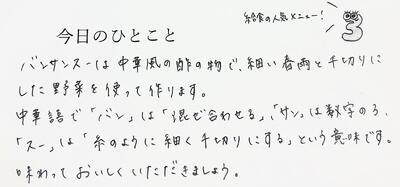 給食の人気メニュー!
今日のひとこと
バンサンスーは中華風の酢の物で、細い春雨と千切りに
した野菜を使って作ります。
中華語で「バン」は「混ぜ合わせる」、「サン」は数字の3、
「スー」は「糸のように細く千切りにする」という意味です。
味わっておいしくいただきましょう。